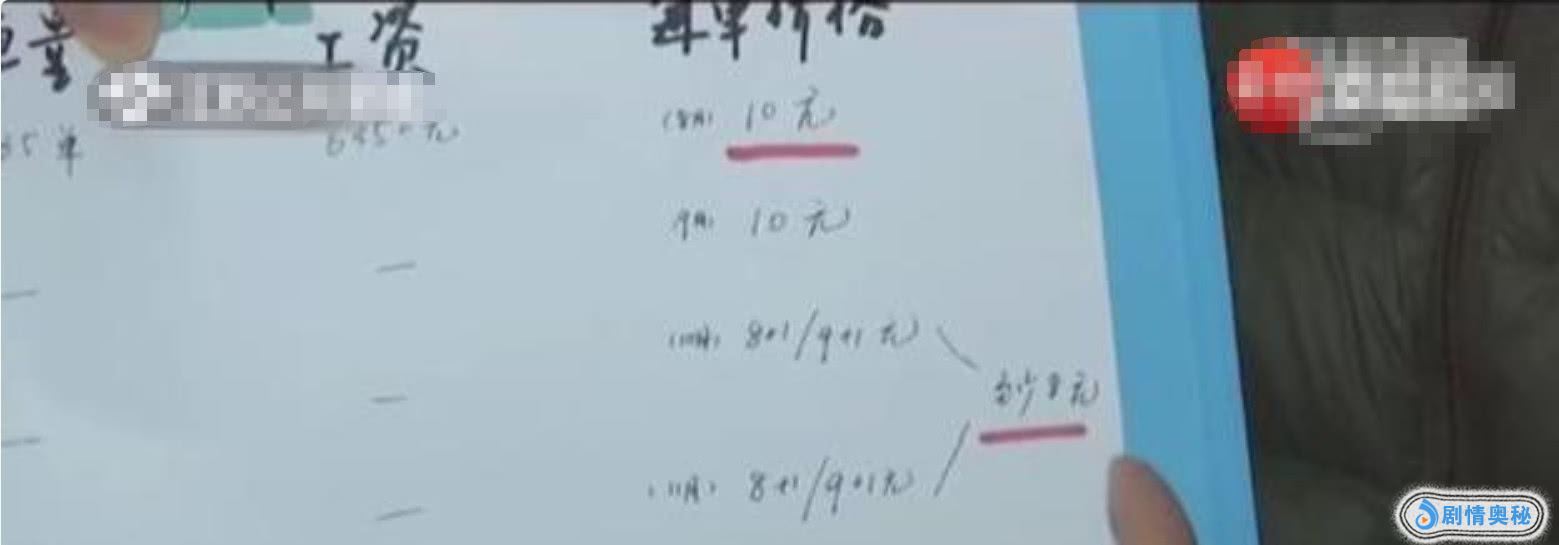 单量 工资 每单价格
35单 6450元 (8月) 10元
(9月) 10元
(10月) 8+1/9+1元
至少8元
(11月) 8+1/9+1元
剧情奥秘